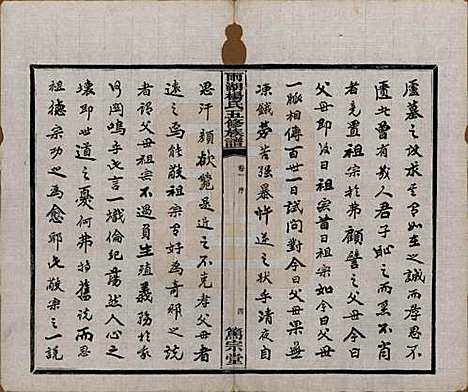 廬墓之致求其有如之誠而孝思不
匱者曾有幾人君子恥之而不孝
者竟置祖宗於弗顧譬之今日父母
父母即後日祖宗昔日祖宗如今日父母
一脈相傳百世一日試問對今日父母果無
凍餓勞苦强暴悖逆之狀乎清夜自
雨湖楊氏五修族譜
卷一 序
四
篤宗堂
思汗顏欲覽是近之不克孝父母者
遠之焉能敬祖宗有好為奇邪之說
者謂父母祖宗不過員生殖義務於我
何與嗚乎此言一熾倫紀蕩然人心之
壞即世道之憂何弗特舊說而思
祖德宗功之為愈邪此敬宗之一說